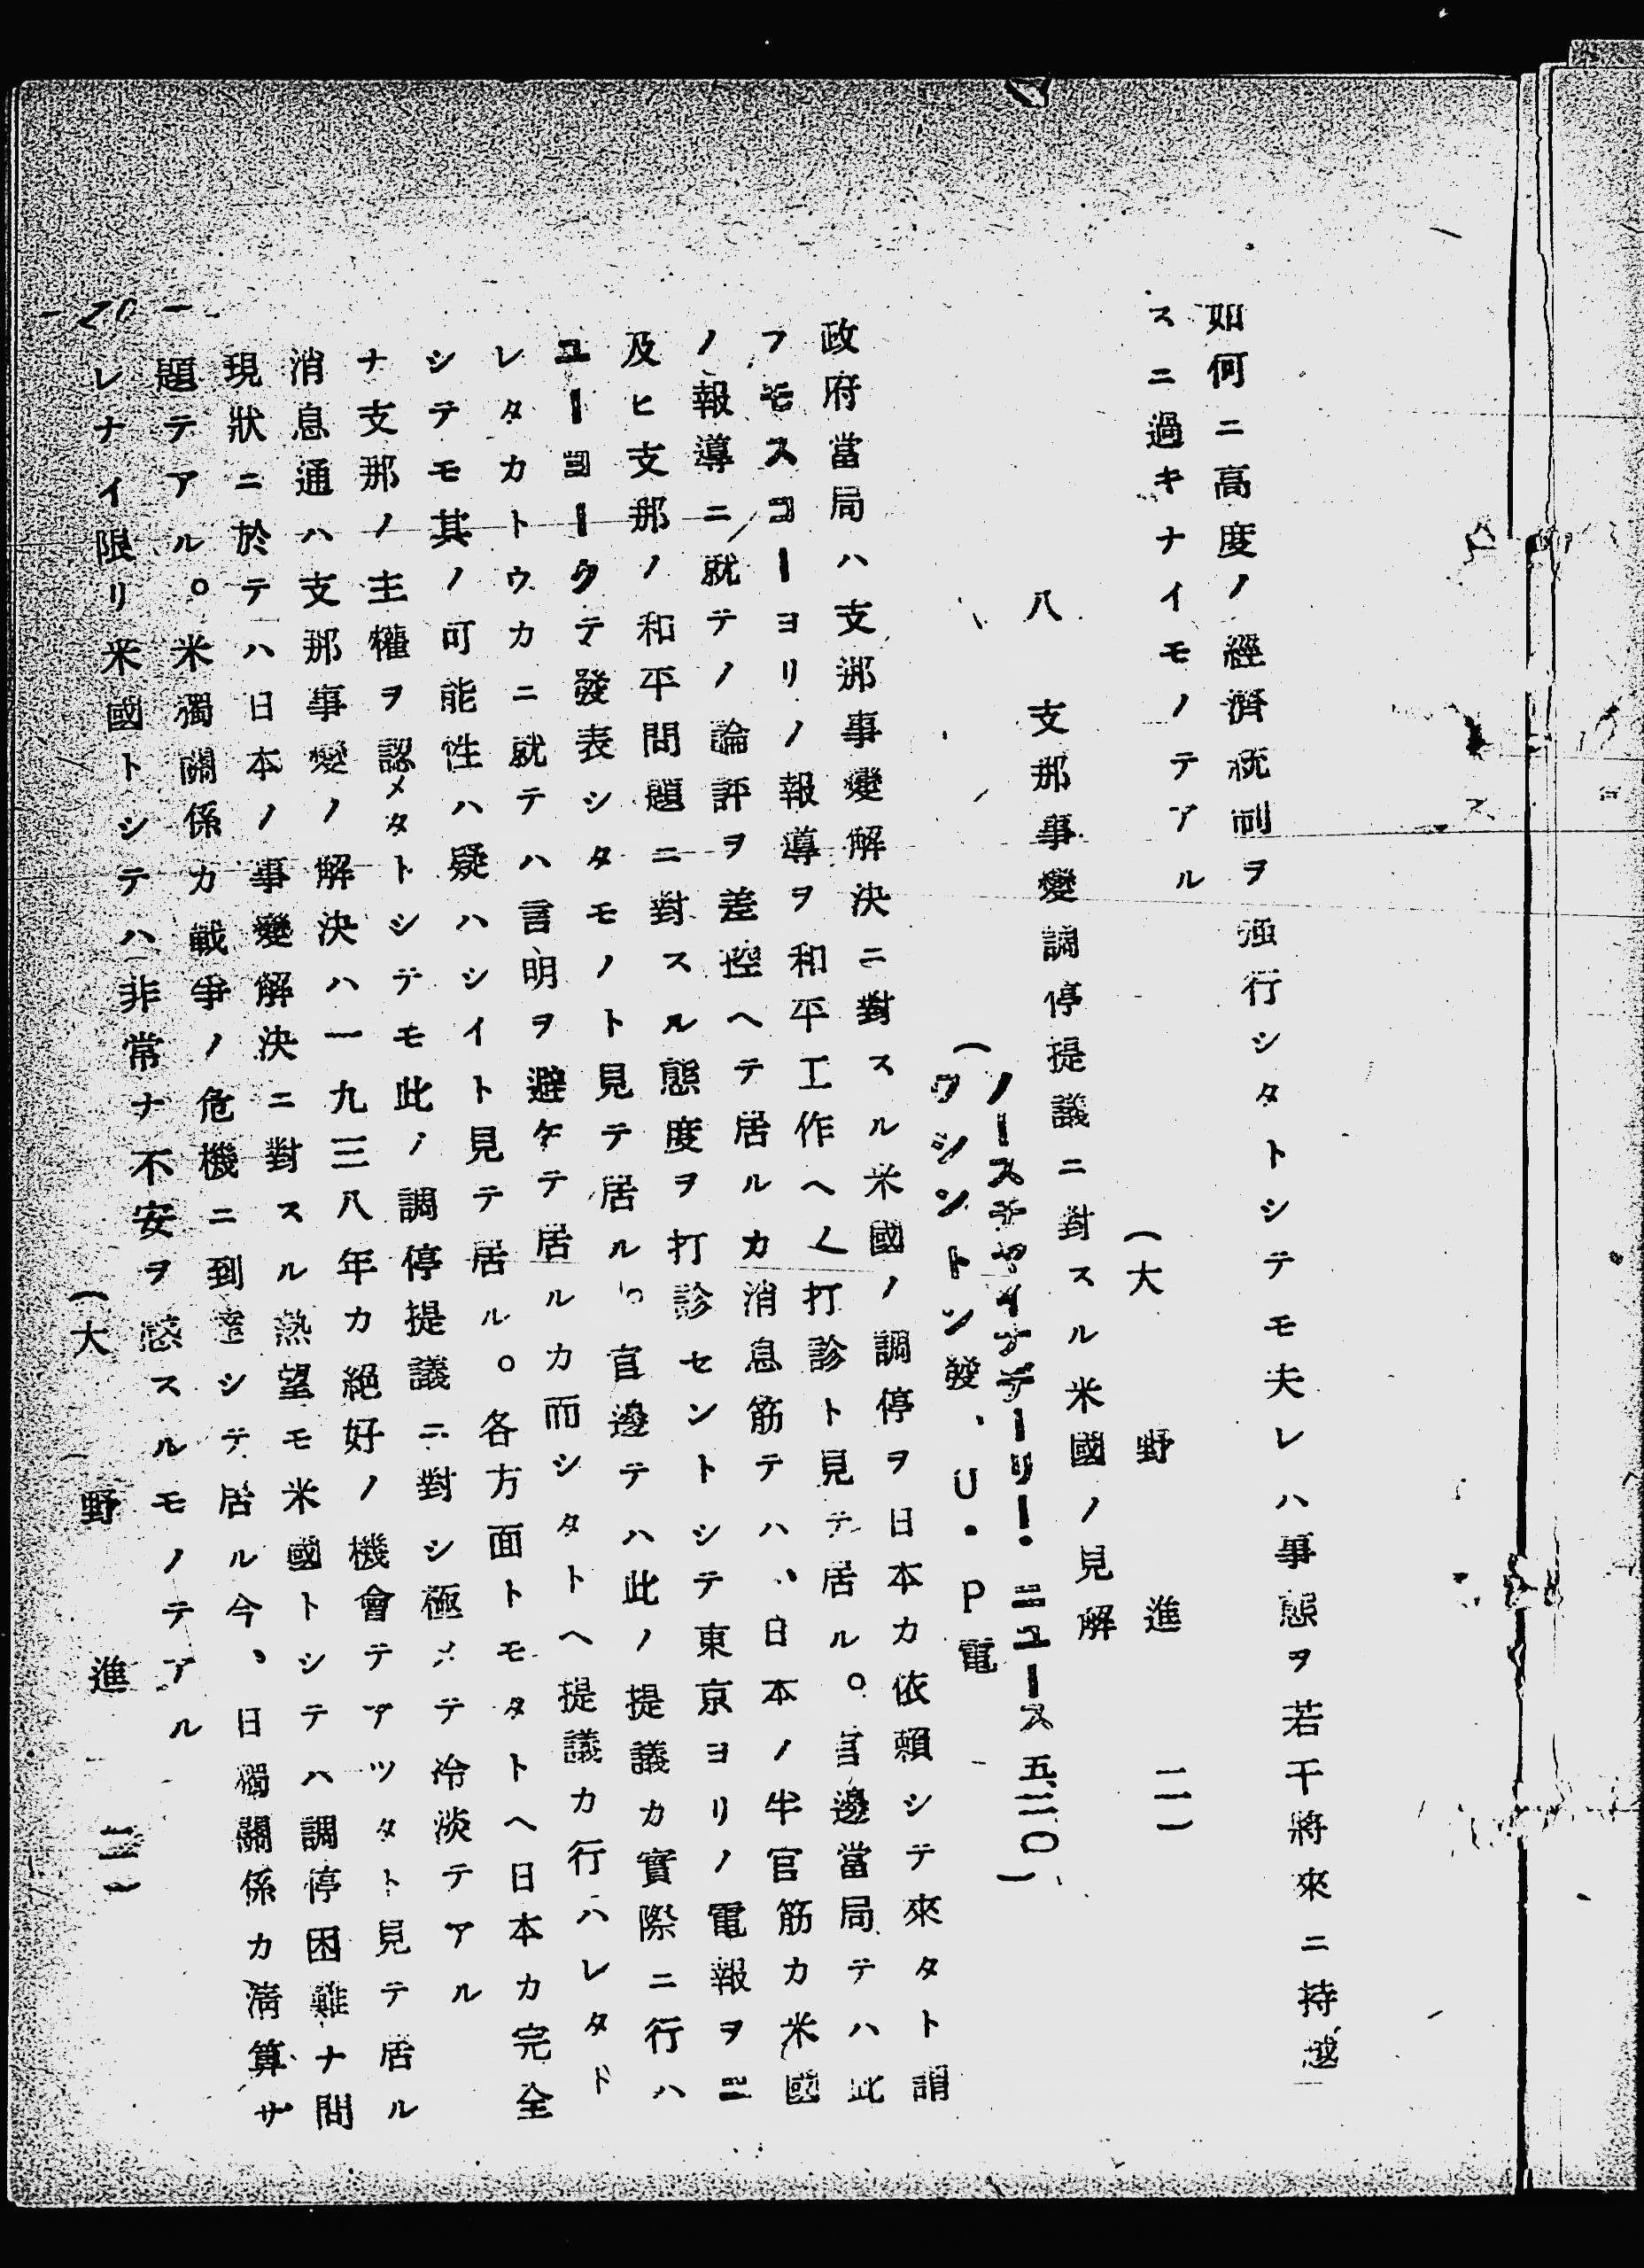 如何ニ高度ノ經濟統制ヲ强行シタトシテモ夫レハ事態ヲ若干將來ニ持越
スニ過キナイモノテアル
(大野進二)
八 支那事變調停提議ニ對スル米國ノ見解
(ノースチヤイナデーリー・ニユース五、三〇)
(ワシントン發、U・P電
政府當局ハ支那事變解決ニ對スル米國ノ調停ヲ日本カ依賴シテ來タト謂
フモスコーヨリノ報導ヲ和平工作ヘノ打診ト見テ居ル。官邊當局テハ此
ノ報導ニ就テノ論評ヲ差控ヘテ居ルカ消息筋テハ、日本ノ半官筋カ米國
及ヒ支那ノ和平問題ニ對スル態度ヲ打診セントシテ東京ヨリノ電報ヲニ
ユーヨークテ發表シタモノト見テ居ル。官邊テハ此ノ提議カ實際ニ行ハ
レタカトウカニ就テハ言明ヲ避ケテ居ルカ而シタトヘ提議カ行ハレタト
シテモ其ノ可能性ハ疑ハシイト見テ居ル。各方面トモタトヘ日本カ完全
ナ支那ノ主權ヲ認メタトシテモ此ノ調停提議ニ對シ極メテ冷淡テアル
消息通ハ支那事變ノ解決ハ一九三八年カ絕好ノ機會テアツタト見テ居ル
現狀ニ於テハ日本ノ事變解決ニ對スル熱望モ米國トシテハ調停困難ナ問
題テアル。米獨關係カ戰爭ノ危機ニ到達シテ居ル今、日獨關係カ淸算サ
レナイ限リ米國トシテハ非常ナ不安ヲ感スルモノテアル
(大野進二)
-20-